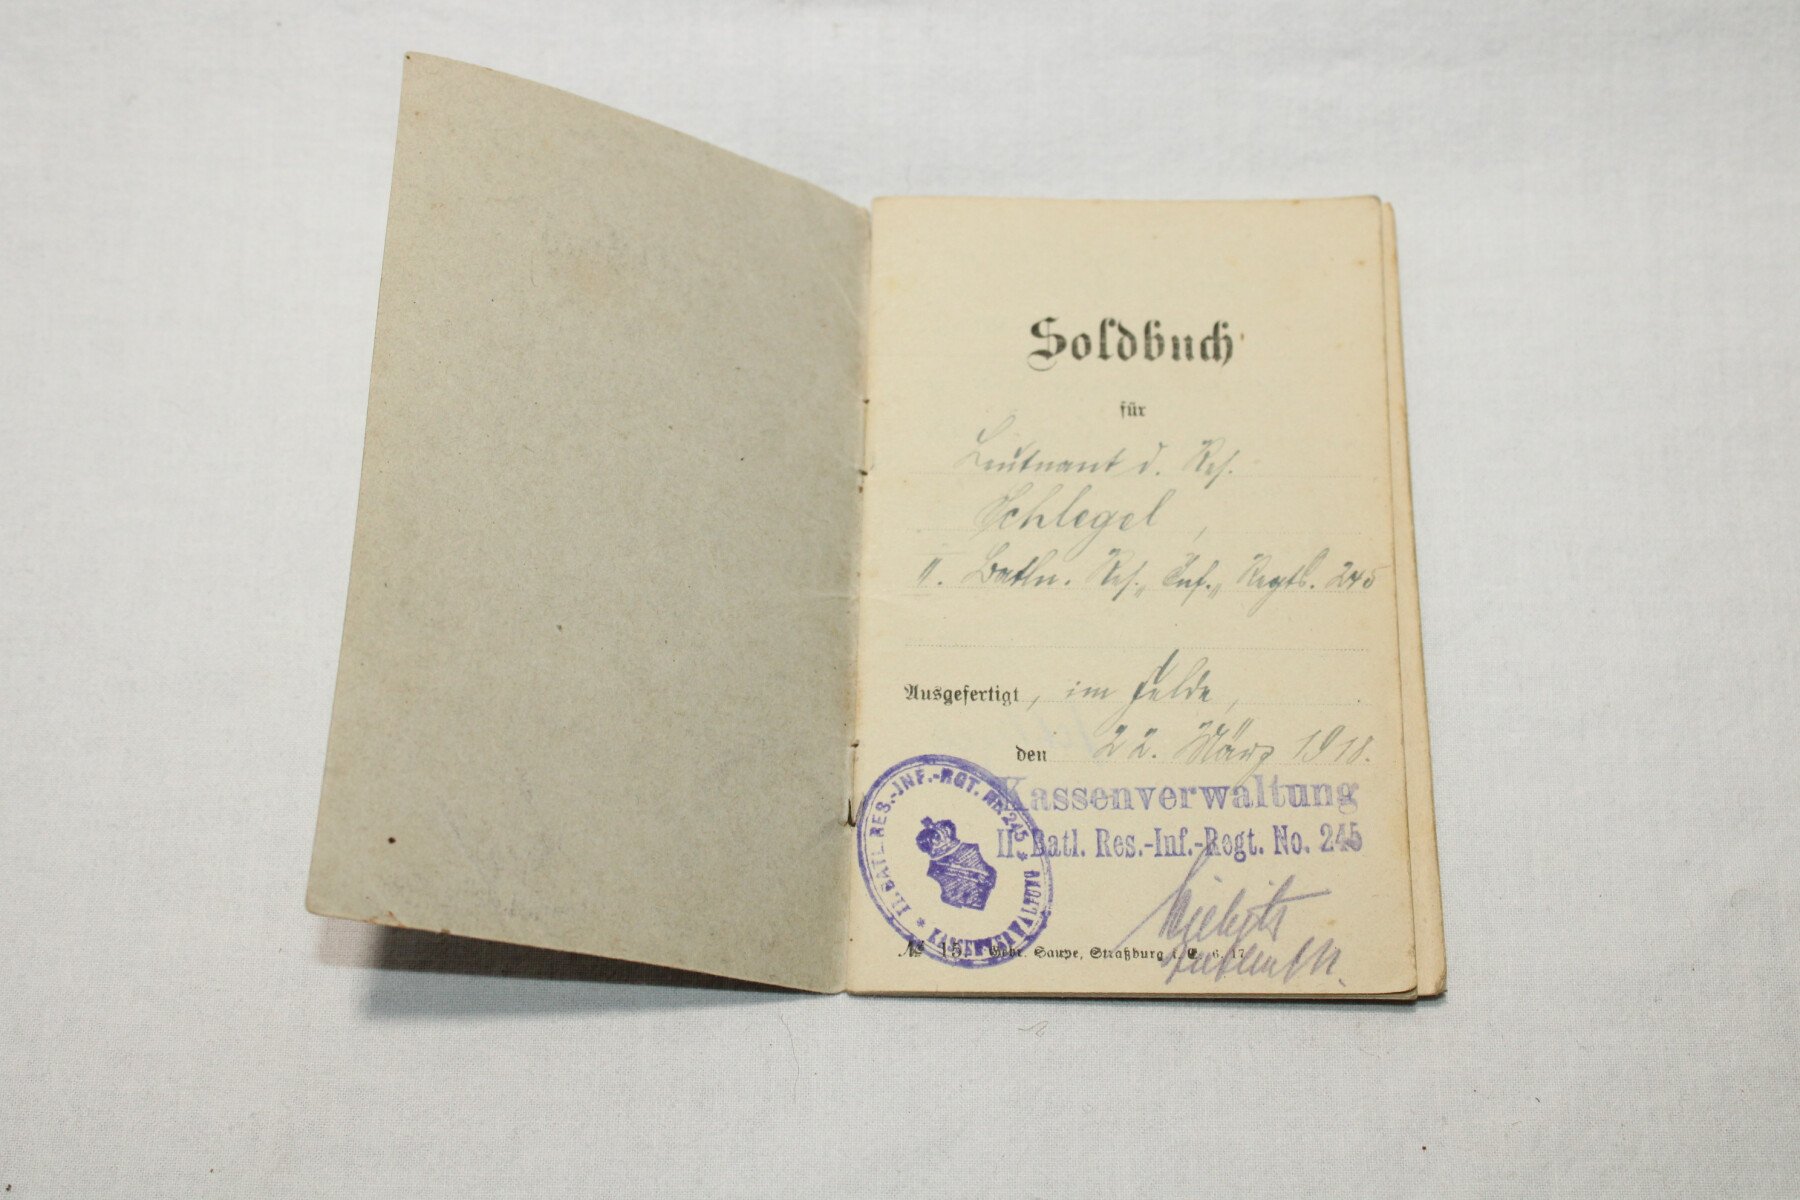 Soldbuch
für
Leutnant d. Res.
Schlegel,
II. Batln. Res. Inf. Regts. 245
Ausgefertigt, im Felde,
den 22. März 1918.
Kassenverwaltung
II. Batl. Res.-Inf.-Regt. No. 245
* II. BATL. RES.-INF.-RGT. NR. 245 * KASSENVERWALTUNG
№ 15. Gebr. Saupe, Straßburg i. E. 6. 17